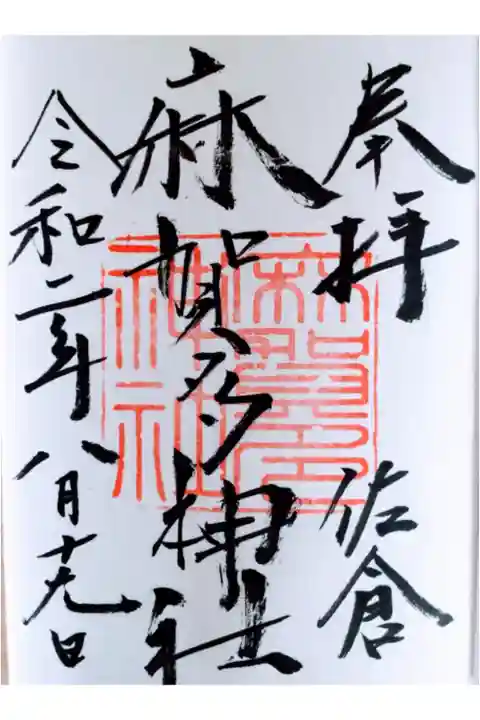 奉拝 佐倉
麻賀多神社
令和二年八月十九日
麻賀多
神社